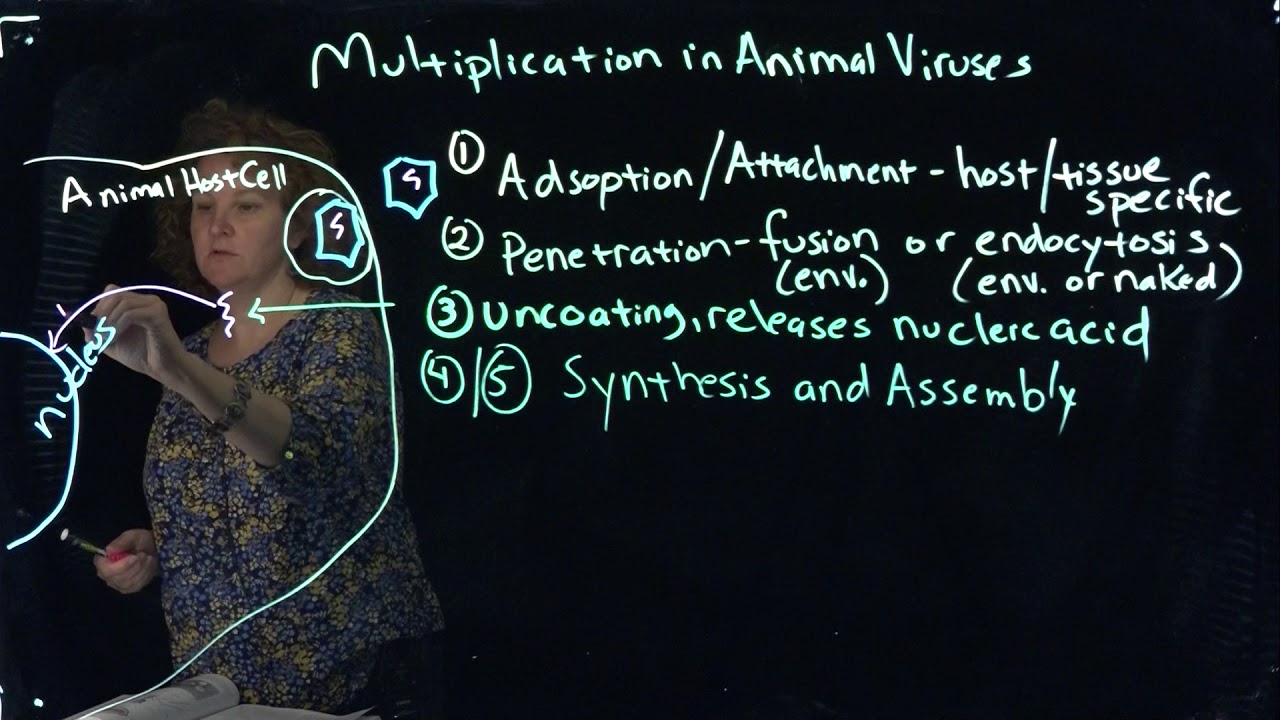 Multiplication in Animal Viruses
Animal Host Cell
nucleus
① Adsoption/Attachment - host/tissue
specific
② Penetration - fusion or endocytosis
(env.) (env. or naked)
③ uncoating, releases nucleic acid
④/⑤ Synthesis and Assembly